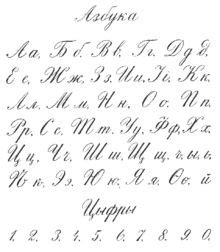 Азбука
Аа, Бб, Вв, Гг, Дд д,
Ее, Жж, Зз, Ии, Іі, Кк,
Лл, Мм, Нн, Оо, Пп,
Рр, Сс, Тт, Уу, Фф, Хх,
Цц, Чч, Шш, Щщ, ъ, ы, ь,
Ѣѣ, Ээ, Юю, Яя, Ѳѳ, й
Цыфры
1. 2. 3. 4. 5. 6. 7. 8. 9. 0.